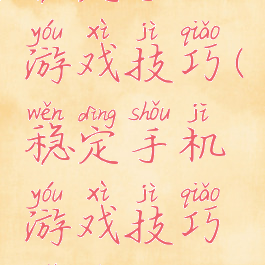 yóu xì jì qiǎo
游戏技巧(
wěn dìng shǒu jī
稳定手机
yóu xì jì qiǎo
游戏技巧